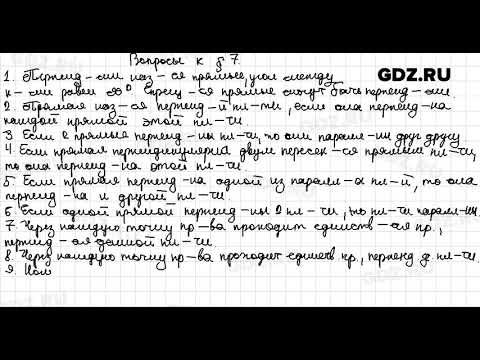 Вопросы к § 7.
GDZ.RU
1. Перпенд-ми наз-ся прямые, угол между
к-ми равен 90° Скрещ-ся прямые могут быть перпенд-ми.
2. Прямая наз-ся перпенд-й пл-ти, если она перпенд-на
каждой прямой этой пл-ти.
3 Если 2 прямые перпенд-ны пл-ти, то они паралл-ны друг другу
4 Если прямая перпендикулярна двум пересек-ся прямым пл-ти,
то она перпенд-на этой пл-ти.
5. Если прямая перпенд-на одной из паралл-х пл-й, то она
перпенд-на и другой пл-ти.
6. Если одной прямой перпенд-ны 2 пл-ти, то пл-ти паралл-ны.
7. Через каждую точку пр-ва проходит единств-ая пр.,
перпенд-ая данной пл-ти.
8. Через каждую точку пр-ва проходит единств пр., перпенд. д. пл-ти.
9. Ном